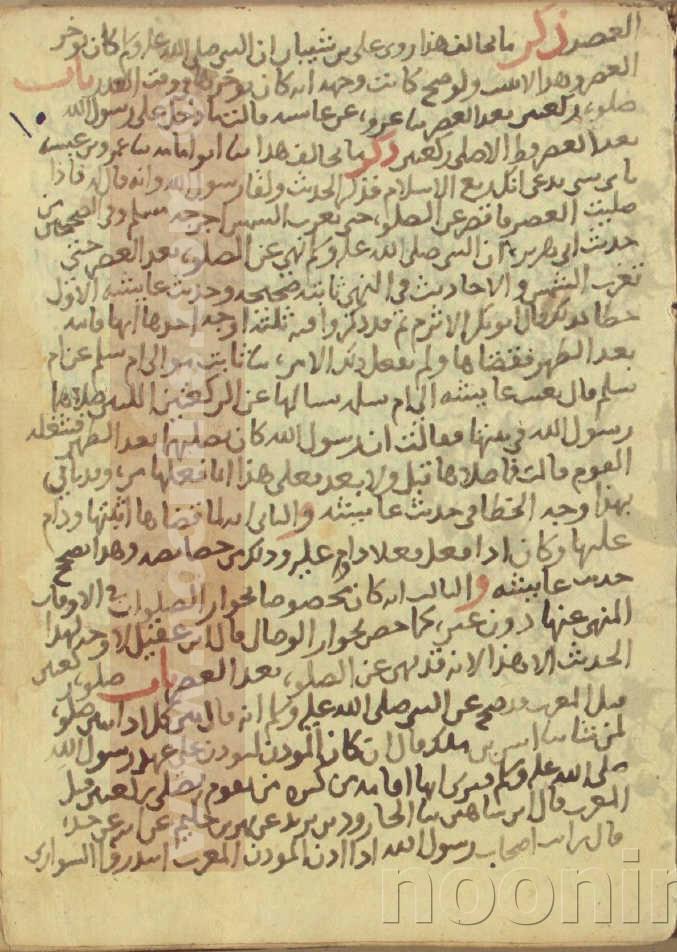 العصر ذكر ما يخالف هذا روى على بن شيبان ان النبى صلى الله عليه وسلم كان يوخر
العصر وهذا لا يثبت ولو صح كانت وجهه انه كان يوخرها فى وقت العذر باب
صلوة ركعتين بعد العصر عروة عن عايشة قالت ما دخل على رسول الله
بعد العصر قط الا صلى ركعتين ذكر ما يخالف هذا ابو امامة عمرو بن عبسة
الاسلام فذكر الحديث ولقا رسول الله وانه قال له فاذا
صليت العصر فاقصر عن الصلوة حتى تغرب الشمس اخرجه مسلم وفى الصحيحين من
حديث ابى هريرة ان النبى صلى الله عليه وسلم نهى عن الصلوة بعد العصر حتى
تغرب الشمس والاحاديث فى النهى ثابتة صحيحة وحديث عايشة الاول
خطا قال ابو بكر الاثرم ثم قد ذكروا فيه ثلثة اوجه احدها انها فاتته
بعد الظهر فقضاها ولم يفعل ذلك الا مرة ام سلم عن ام
سلم قال بعث عايشة الى ام سلمة سالها عن الركعتين اللتين صلاها
رسول الله فى بيتها فقالت ان رسول الله كان يصليها بعد الظهر فشغله
القوم قالت فما صلاها قبل ولا بعد فعلى هذا انما فعلها مرة
بهذا وجه الخطا فى حديث عايشة والثانى انه لما قضاها اثبتها ودام
عليها وكان اذا فعل فعلا دام عليه وذلك من خصايصه وهذا يصحح
حديث عايشة والثالث انه كان مخصوصا بجواز الصلوات فى الاوقات
المنهى عنها دون غيره كما خص بجواز الوصال قال ابن عقيل لا وجه لهذا
الحديث الا هذا لانه قد نهى عن الصلوة بعد العصر باب صلوة ركعتين
قبل المغرب قد صح عن النبى صلى الله عليه وسلم انه قال بين كل اذانين صلوة
لمن شاء انس بن ملك قال ان كان الموذن ليوذن على عهد رسول الله
صلى الله عليه وسلم فيرى انها اقامة من كثرة من يقوم يصلى ركعتين قبل
المغرب قال ابن شاهين الجارود بن يزيد عن بهز بن حكيم عن ابيه عن جده
قال رايت اصحاب رسول الله اذا اذن الموذن المغرب ابتدروا السوارى
١٠
noonir